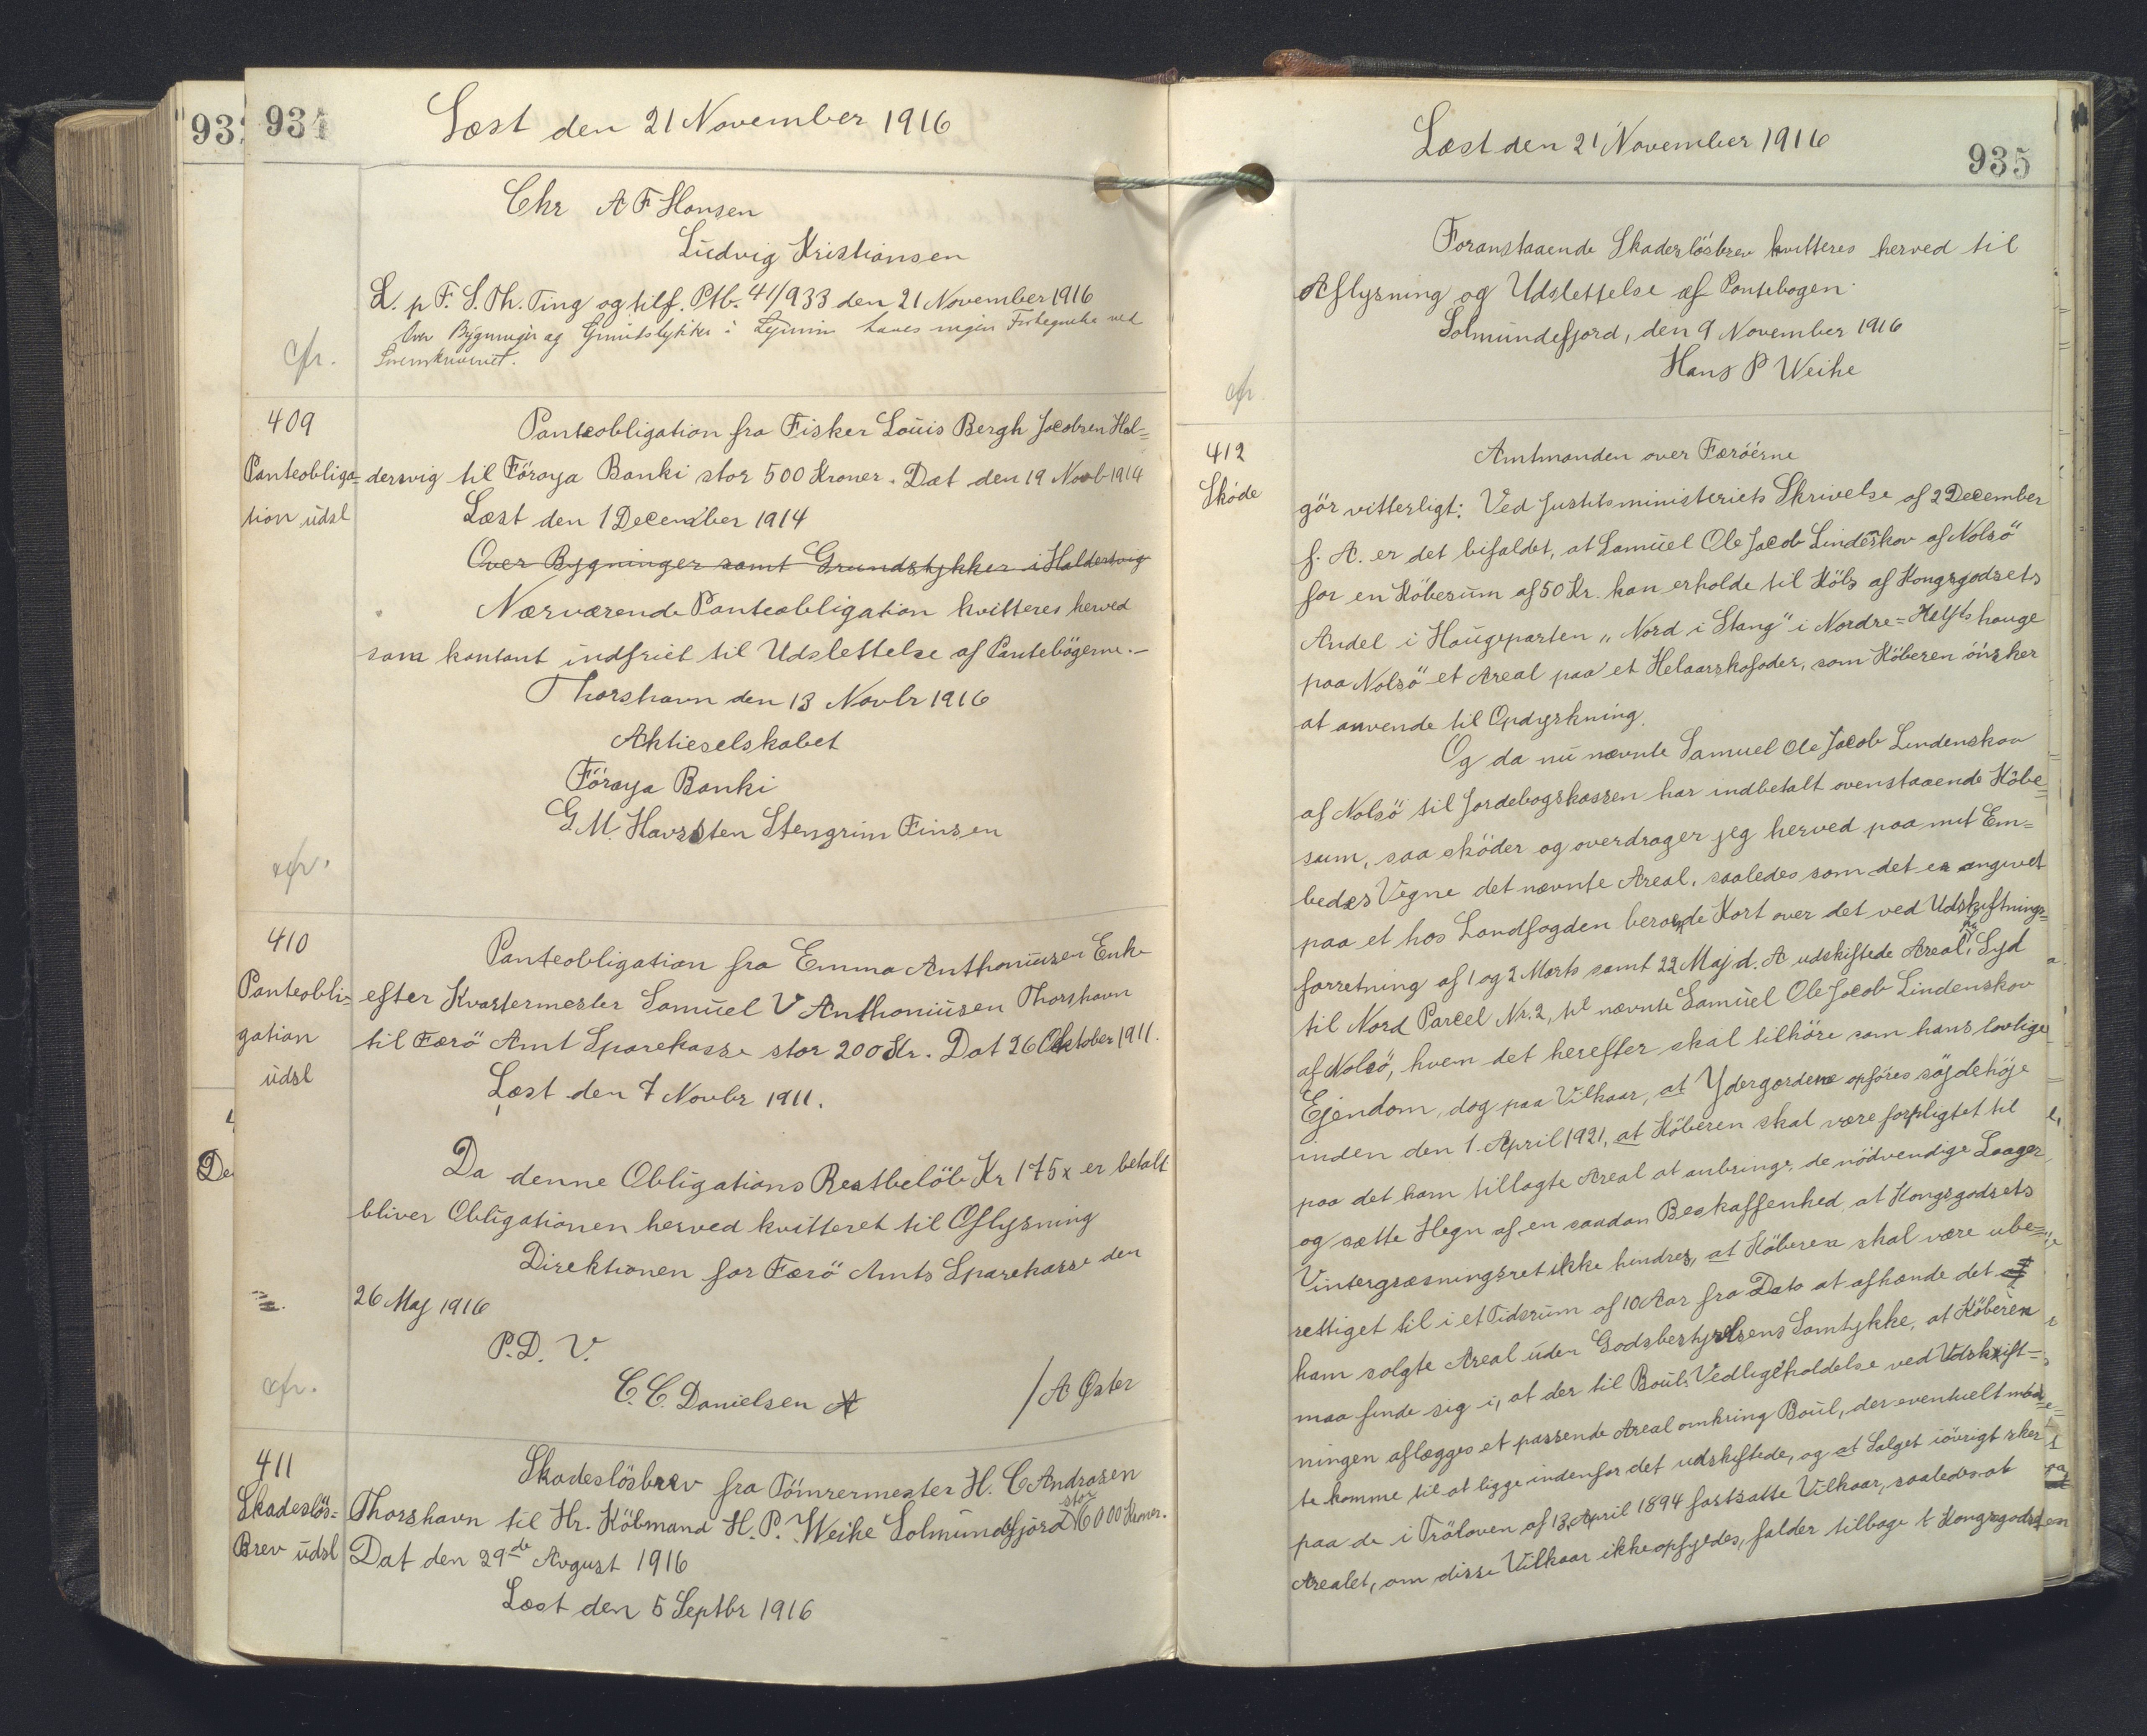 934
Læst den 21 November 1916
Chr A F Hansen
Ludvig Kristiansen
L. p F. S. Th. Ting og tilf. Ptb. 41/933 den 21 November 1916
Over Bygninger og Grundstykker i haves ingen ved
cfr.
409
Panteobligation fra Fisker Louis Bergh Jacobsen Hal=
Panteobliga= dersvig til Föroya Banki stor 500 Kroner. Dat den 19 Novb 1914
tion udsl Læst den 1 December 1914
Over Bygninger samt Grundstykker i Haldersvig
Nærværende Panteobligation kvitteres herved
som kontant indfriet til Udslettelse af Pantebögerne.-
Thorshavn den 13 Novbr 1916
Aktieselskabet
Föroya Banki
G. M. Havssten Stengrim Finsen
cfr.
410
Panteobligation fra Emma Anthoniusen Enke
Panteobli= efter Kvartermester Samuel V Anthoniusen Thorshavn
gation til Færö Amt Sparekasse stor 200 Kr. Dat 26 Oktober 1911.
udsl Læst den 7 Novbr 1911.
Da denne Obligations Restbelöb Kr 175 x er betalt
bliver Obligationen herved kvitteret til Aflysning
Direktionen for Færö Amts Sparekasse den
26 Maj 1916
P. D. V.
C. C. Danielsen / A Øster
cfr.
411
Skadeslösbrev fra Tömrermester H. C Andrasen
Skadeslös= Thorshavn til Hr. Köbmand H. P. Weihe Solmundefjörd stor 16000 Kroner.
Brev udsl Dat den 29de Avgust 1916
Læst den 5 Septbr 1916
Læst den 21 November 1916
935
Foranstaaende Skadeslösbrev kvitteres herved til
Aflysning og Udslettelse af Pantebogen.
Solmundefjord, den 9 November 1916
Hans P Weihe
cfr.
412
Amtmanden over Færöerne
Sköde
gör vitterligt: Ved Justitsministeriets Skrivelse af 2 December
f. A. er det bifaldet, at Samuel Ole Jacob Lindenskov af Nolsö
for en Köbesum af 50 Kr. kan erholde til Köbs af Kongsgodsets
Andel i Haugeparten „Nord i Stang" i Nordre=Helfts hauge
paa Nolsö et Areal paa et Helaarskofoder, som Köberen önsker
at anvende til Opdyrkning.
Og da nu nævnte Samuel Ole Jacob Lindenskov
af Nolsö til Jordebogskassen har indbetalt ovenstaaende Köbe=
sum, saa sköder og overdrager jeg herved paa mit Em=
bedes Vegne det nævnte Areal, saaledes som det er angivet
paa et hos Landfogden beroende Kort over det ved Udskiftnings=
forretning af 1 og 2 Marts samt 22 Maj d. A udskiftede Areal, Syd
til Nord Parcel Nr. 2, til nævnte Samuel Ole Jacob Lindenskov
af Nolsö, hvem det herefter skal tilhöre som hans lovlige
Ejendom, dog paa Vilkaar, at Ydergærdene opföres söjdehöje
inden den 1. April 1921, at Köberen skal være forpligtet til
paa det ham tillagte Areal at anbringe de nödvendige Laager
og sætte Hegn af en saadan Beskaffenhed, at Kongsgodsets
Vintergræsningsret ikke hindres, at Köberen skal være ube=
rettiget til i et Tidsrum af 10 Aar fra Dato at afhænde det
ham solgte Areal uden Godsbestyrelsens Samtykke, at Köberen
maa finde sig i, at der til Bouls Vedligeholdelse ved Udskift=
ningen aflægges et passende Areal omkring Boul, der eventuelt maat=
te komme til at ligge indenfor det udskiftede, og at Salget iövrigt sker
paa de i Tröloven af 13 April 1894 fastsatte Vilkaar, saaledes at
Arealet, om disse Vilkaar ikke opfyldes, falder tilbage t Kongsgodset